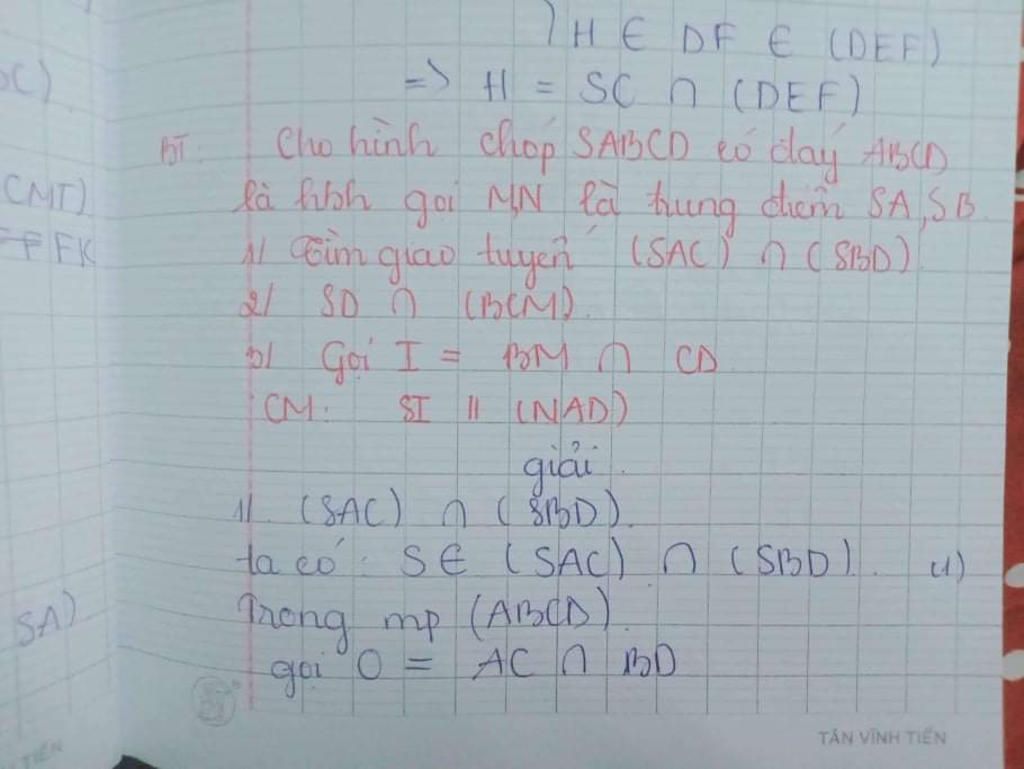 H ∈ DF ∈ (DEF)
=> H = SC ∩ (DEF)
C)
BT. Cho hình chóp SABCD có đáy ABCD
(CMI)
là hbh gọi M,N là trung điểm SA, SB.
FK
1/ Tìm giao tuyến (SAC) ∩ (SBD)
2/ SD ∩ (BCM).
3/ Gọi I = BM ∩ CD
CM: SI // (NAD)
giải.
1/. (SAC) ∩ (SBD).
ta có: S ∈ (SAC) ∩ (SBD). (1)
SA)
Trong mp (ABCD).
gọi O = AC ∩ BD
TÂN VĨNH TIẾN
TIẾN